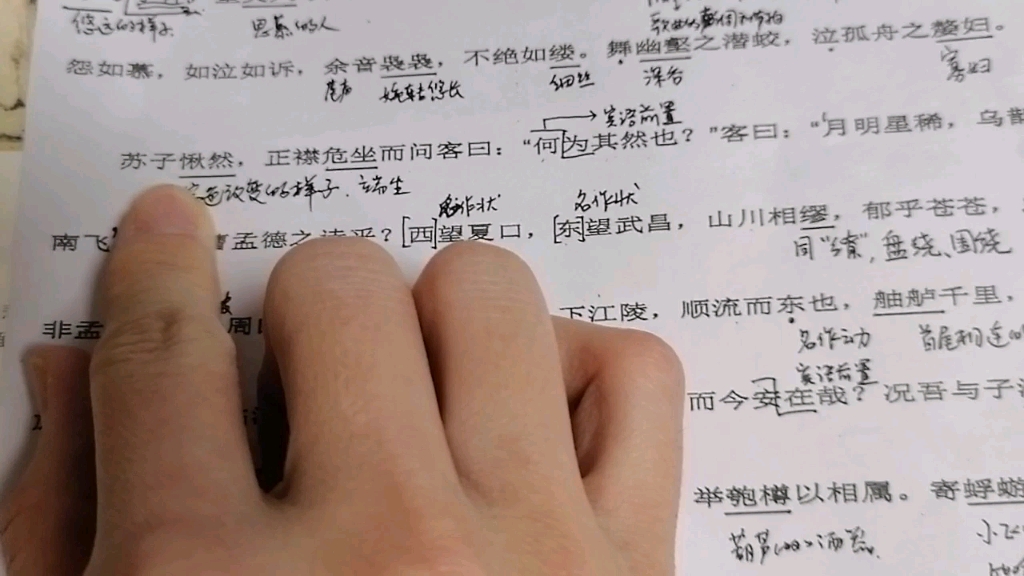 悠远的样子 思慕的人
怨如慕，如泣如诉，余音袅袅，不绝如缕。舞幽壑之潜蛟，泣孤舟之嫠妇。
尾声 婉转悠长 细丝 深谷 寡妇
宾语前置
苏子愀然，正襟危坐而问客曰："何为其然也？"客曰："月明星稀，乌
改变的样子 端坐
名作状 名作状
南飞 孟德之诗乎？[西]望夏口，[东]望武昌，山川相缪，郁乎苍苍，
同"缭"，盘绕、围绕
非孟 周 下江陵，顺流而东也，舳舻千里，
名作动 首尾相连
宾语前置
而今安在哉？况吾与子
举匏樽以相属。寄蜉蝣
葫芦 酒器